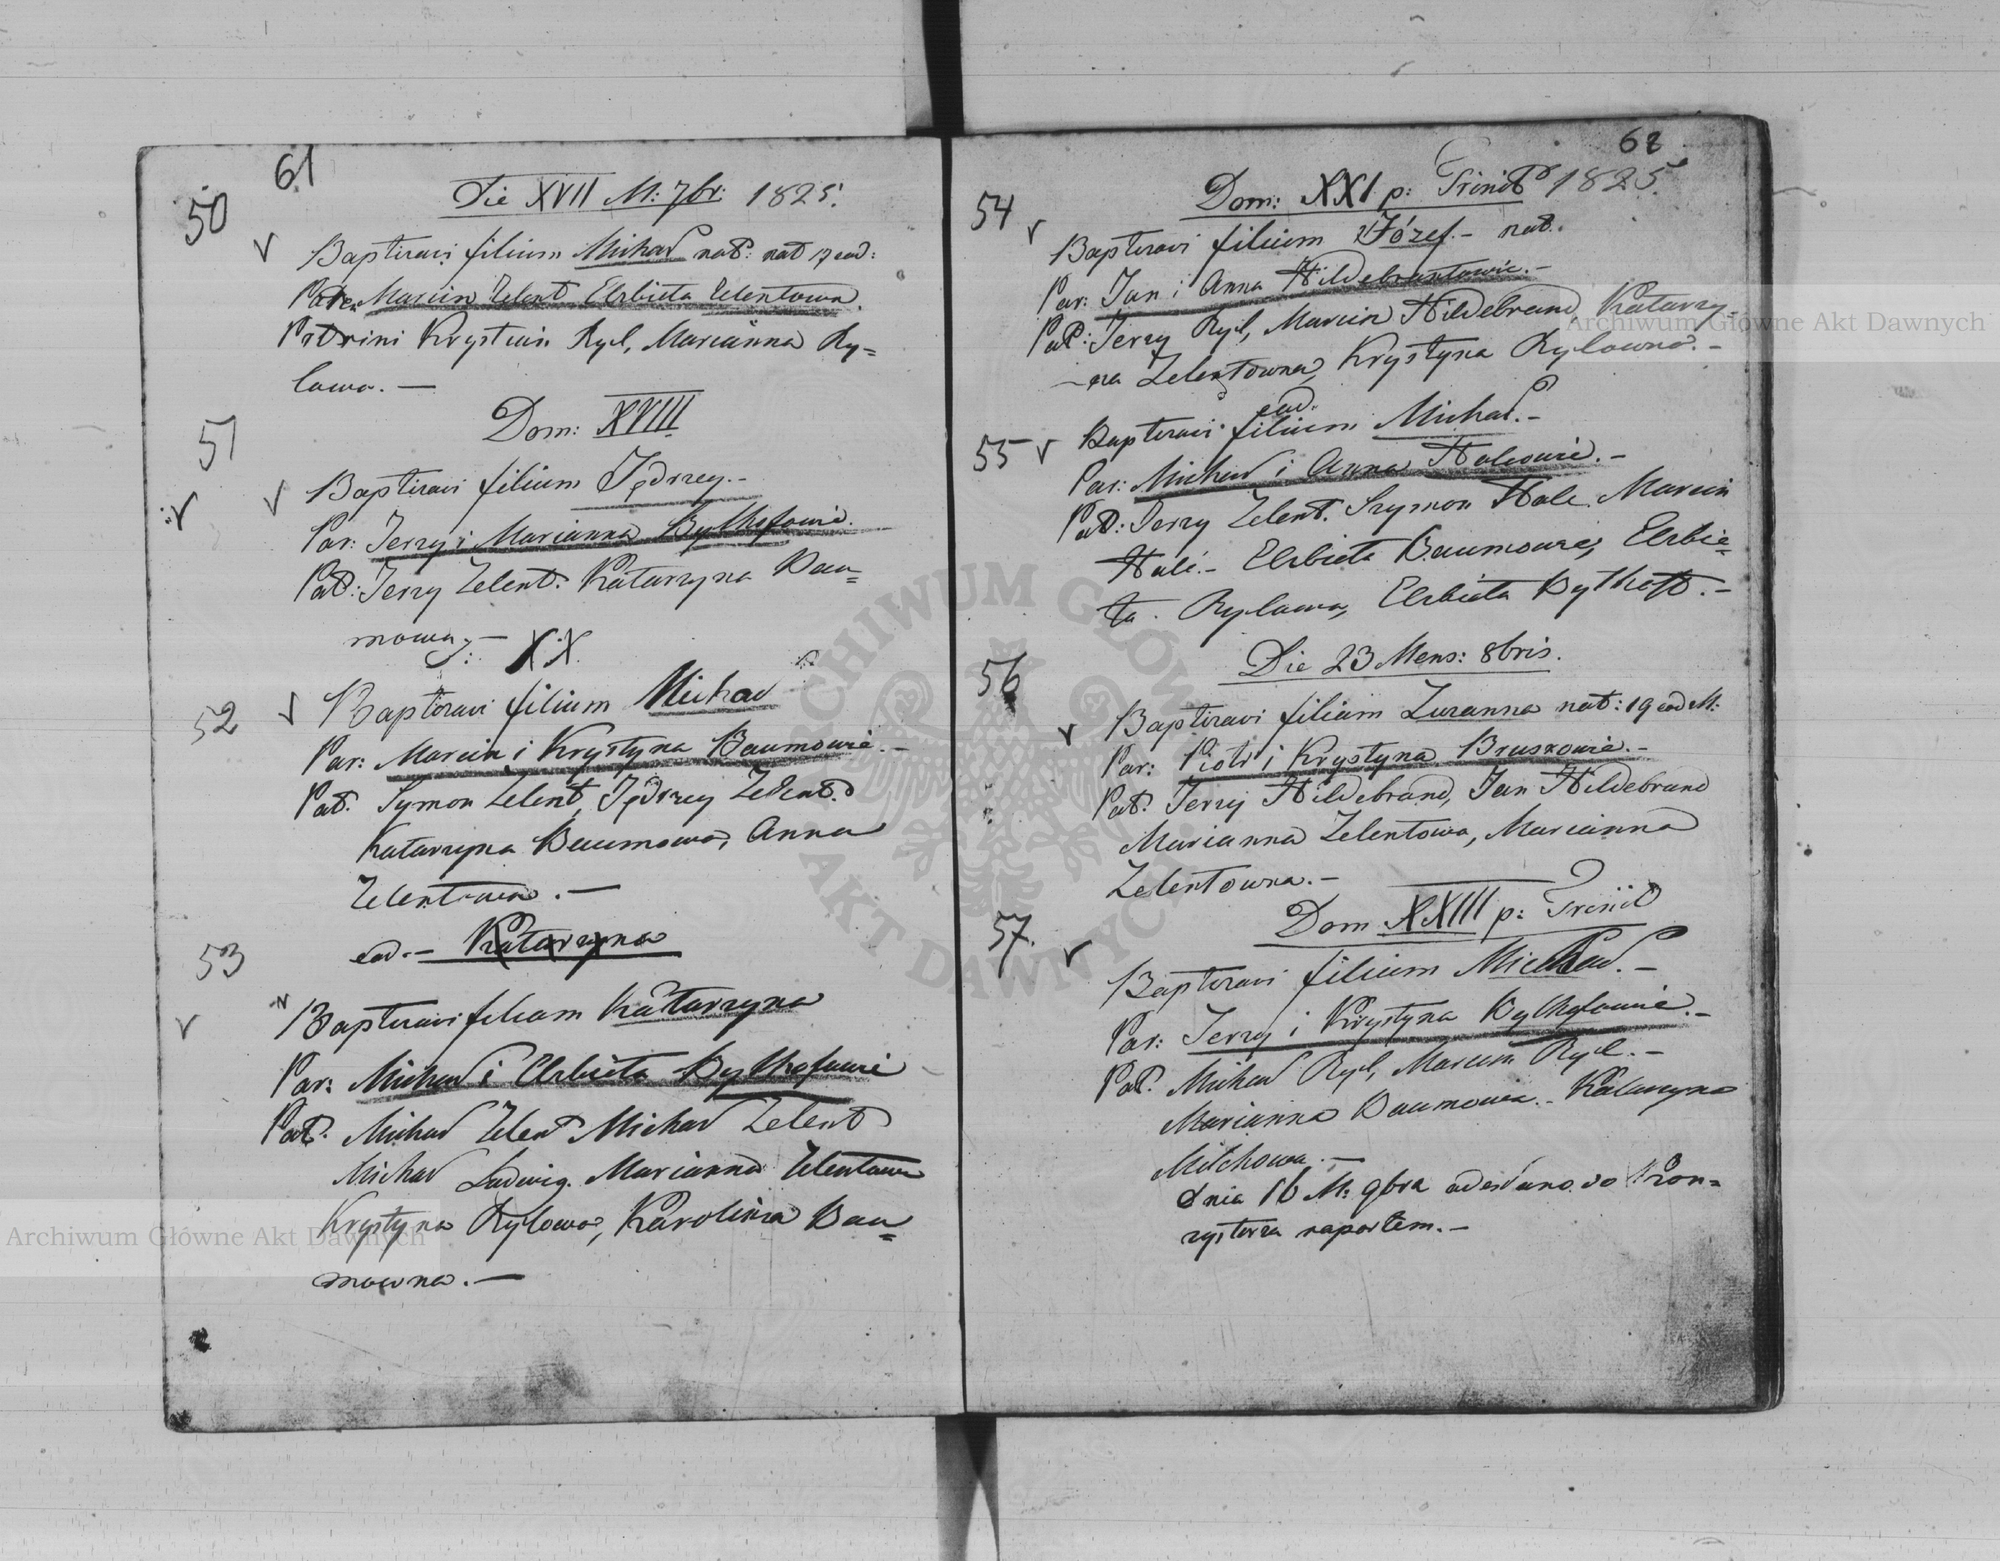 61
50
Die XVII M: 7br: 1825.
Baptizavi filium Michał nat: nat 17 ead:
Marcin Zelent Elzbieta Zelentowa.
Patrini Krystian Ryl, Marianna Ry=
lowa. —
51
Dom: XVIII
Baptizavi filium Jędrzey. -
Par: Jerzy i Marianna Bythofowie.
Pat: Jerzy Zelent. Katarzyna Bau=
mowa; —
XX.
52
Baptizavi filium Michał
Par: Marcin i Krystyna Baumowie. -
Pat. Symon Zelent, Jędrzey Zelent.
Katarzyna Baumowa, Anna
Zelentowa. —
53
ead. - Katarzyna
Baptizavi filiam Katarzyna
Par: Michał i Elzbieta Bythofowie
Pat. Michał Zelent Michał Zelent
Michał Ludwig. Marianna Zelentowa
Krystyna Rylowa, Karolina Bau=
mowna. —
62
54
Dom: XXI p: Trinit 1825.
Baptizavi filium Józef. - nat.
Par: Jan i Anna Hildebrantowie. -
Pat: Jerzy Ryl, Marcin Hildebrand, Katarzy-
-na Zelentowna, Krystyna Rylowna. -
ead.
55
Baptizavi filium Michał. -
Par: Michał i Anna Halowie. -
Pat: Jerzy Zelent. Szymon Hale. Marcin
Hale. - Elzbieta Baumowa, Elzbie=
ta. Rylowa, Elzbieta Bythoff. -
56
Die 23 Mens: 8bris.
Baptizavi filiam Zuzanna nat: 19 ead M:
Par: Piotr i Krystyna Bruskowie. -
Pat. Jerzy Hildebrand, Jan Hildebrand
Marianna Zelentowa, Marianna
Zelentowna. -
57.
Dom XXIII p: Trinit
Baptizavi filium Michał. -
Par: Jerzy i Krystyna Bythofowie. -
Pat. Michał Ryl, Marcin Ryl. -
Marianna Baumowa. - Katarzyna
Milchowa. -
dnia 16 M: 9bra odesłano do Kon=
zystorza raportem. -
Archiwum Główne Akt Dawnych
Archiwum Główne Akt Dawnych
ARCHIWUM GŁÓWNE
AKT DAWNYCH